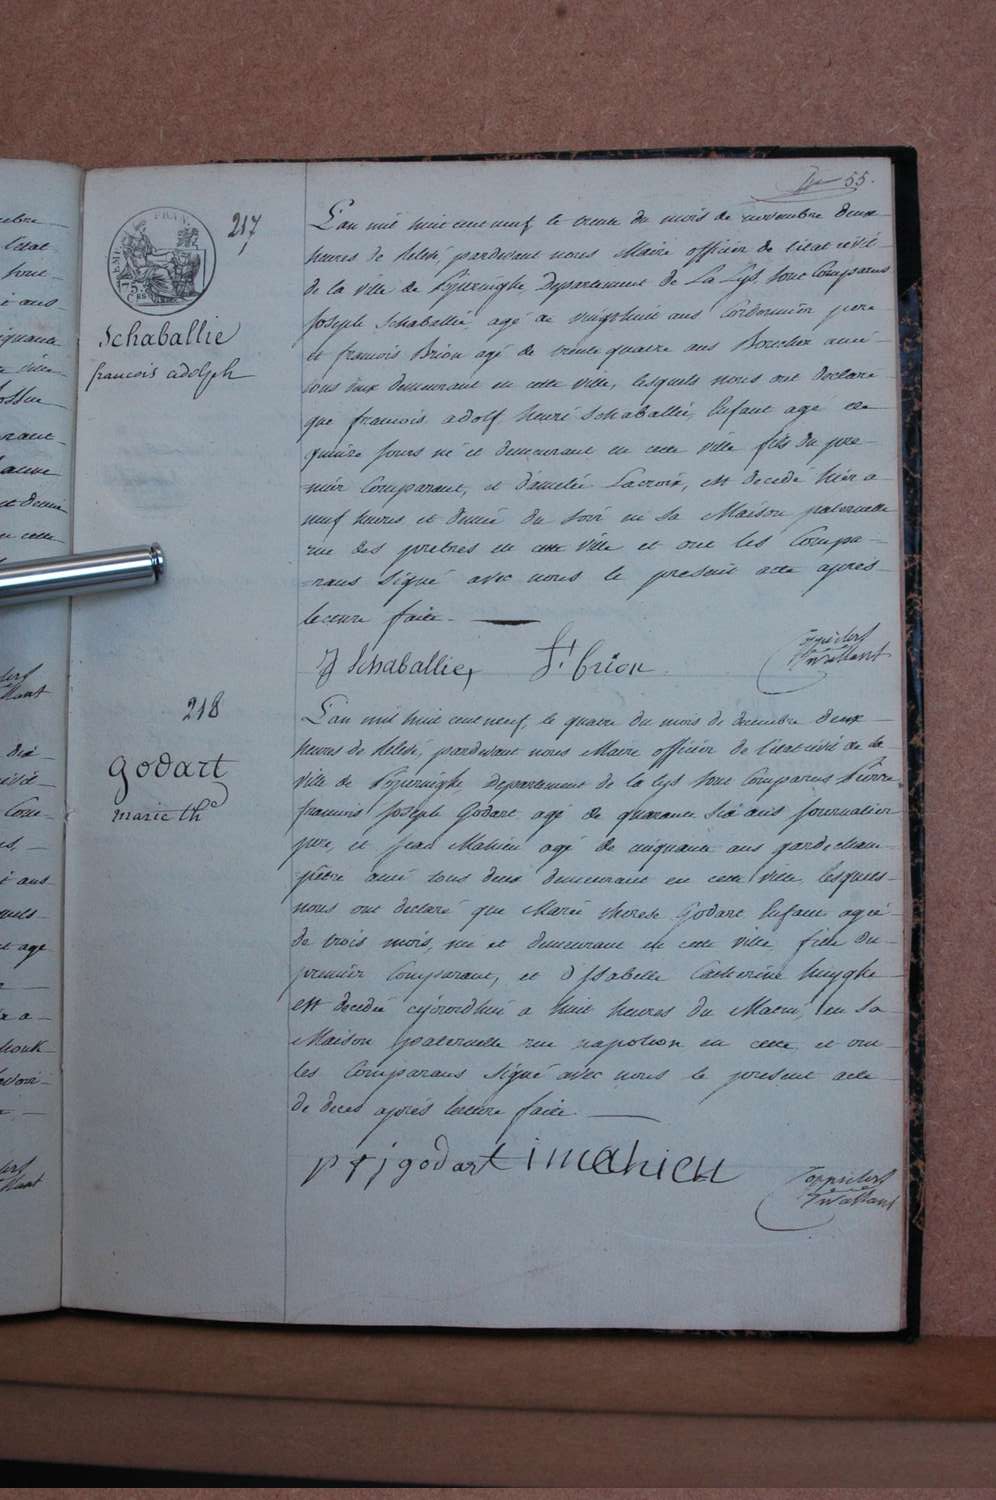 55.
217
Schaballie
francois adolph
L'an mil huit cent neuf le trente du mois de novembre deux
heures de relevé, pardevant nous Maire officier de l'etat civil
de la ville de Departement de La Lys, sont Comparus
Joseph Schaballie agé de vingthuit ans Cordonnier pere
et francois Brion agé de trente quatre ans Boucher ami
tous deux demeurant en cette ville, lesquels nous ont declaré
que francois adolf henri Schaballie, Enfant agé de
quinze jours né et demeurant en cette ville fils du pre-
mier Comparant, et d'amelie Lacroix, est decedé hier a
neuf heures et demie du soir en sa Maison paternelle
rue des pretres en cette ville et ont les Compa-
-rans signé avec nous le present acte après
lecture faite.
J Schaballie, f. brion
218
godart
marie th.e
L'an mil huit cent neuf, le quatre du mois de decembre deux
heures de relevé, pardevant nous Maire officier de l'etat civil de la
ville de Departement de la lys sont Comparus Pierre
francois Joseph Godart agé de quarante six ans journalier
pere, et Jean Mahieu agé de cinquante ans garde cham-
pêtre ami tous deux demeurant en cette ville, lesquels
nous ont declaré que Marie therese Godart Enfant agée
de trois mois, né et demeurant en cette ville fille du
premier Comparant, et d'Isabelle Catherine huyghe
est decedée cejourdhui a huit heures du Matin, en sa
Maison paternelle rue napoleon en cette et ont
les Comparans signé avec nous le present acte
de deces après lecture faite.
p f j godart i mahieu